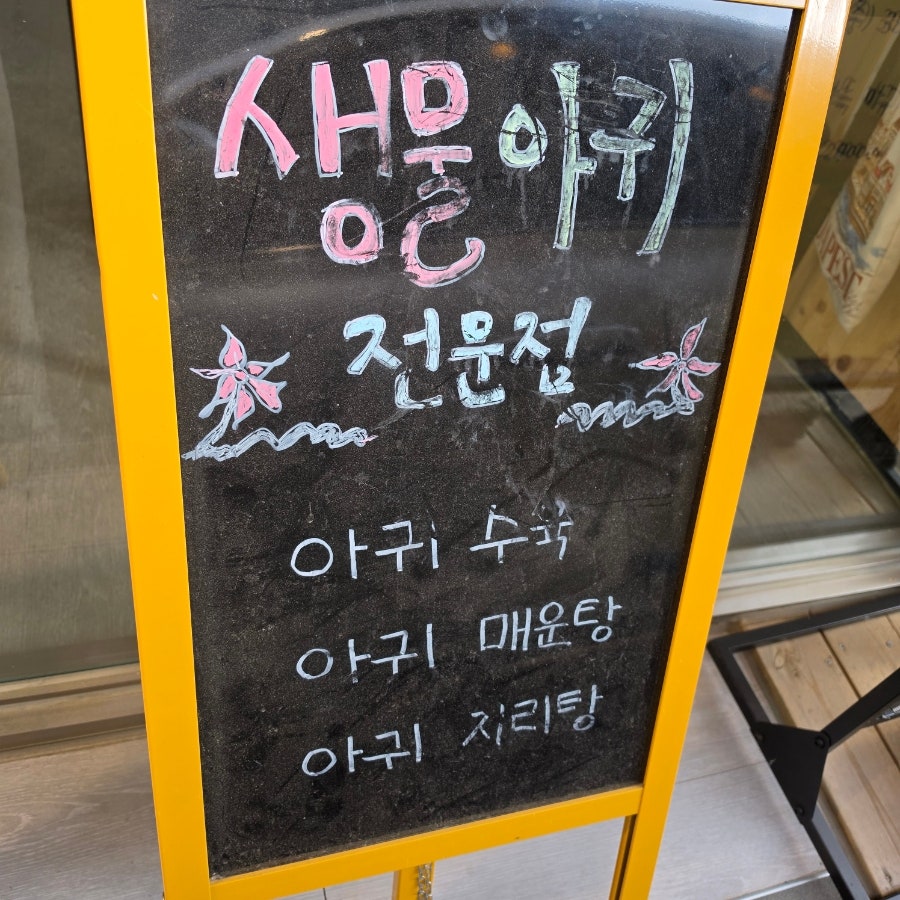 생물 아귀
전문점
아귀 수육
아귀 매운탕
아귀 지리탕
APEST